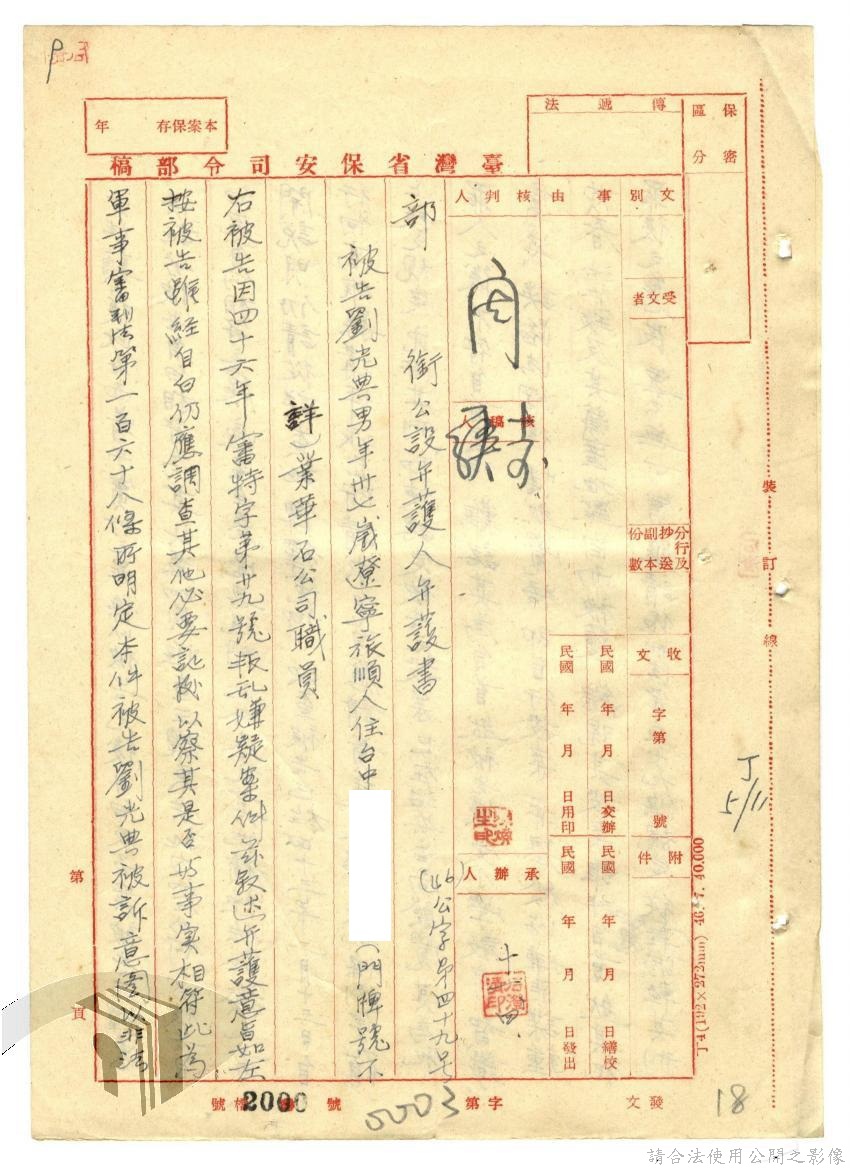 保密區分
傳遞法
本案保存　年
臺灣省保安司令部稿
文別
事由
核判人
受文者
核稿人
分行及抄送副本份數
收文　字第　號
附件
民國　年　月　日交辦
民國　年　月　日用印
民國　年　月　日繕校
民國　年　月　日發出
承辦人
十
(46)公字第四十九号
部　銜公設弁護人弁護書
被告劉光典男年卅七歲遼寧旅順人住台中
(門牌號不
詳)業華石公司職員
右被告因四十六年審特字第廿九號叛乱嫌疑案件茲敘述弁護意旨如左
按被告雖經自白仍應調查其他必要証據以察其是否與事实相符此為
軍事審判法第一百六十八條所明定本件被告劉光典被訴意圖以非法
第　頁
裝訂線
丁(4)(192×273mm) 46.7.40,000
丁
5/11
18
發文　字第　號
0003
檔號
2000
請合法使用公開之影像